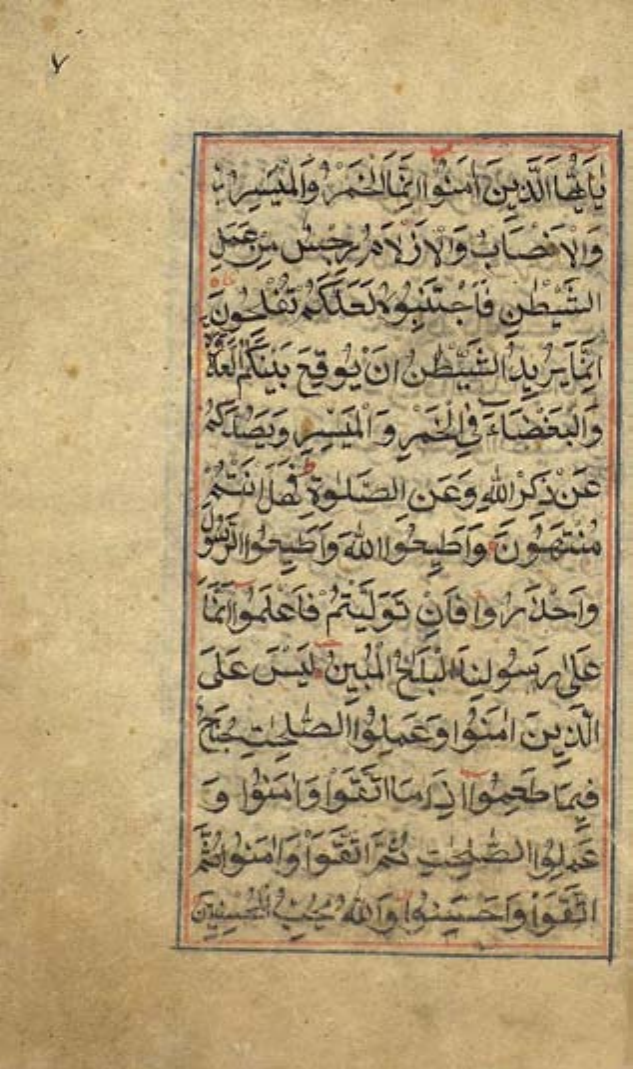 ٧
يٰاَيُّهَا الَّذِينَ اٰمَنُوا اِنَّمَا الْخَمْرُ وَالْمَيْسِرُ
وَالْاَنْصَابُ وَالْاَزْلَامُ رِجْسٌ مِنْ عَمَلِ
الشَّيْطٰنِ فَاجْتَنِبُوهُ لَعَلَّكُمْ تُفْلِحُونَ
اِنَّمَا يُرِيدُ الشَّيْطٰنُ اَنْ يُوقِعَ بَيْنَكُمُ الْعَدَاوَةَ
وَالْبَغْضَاءَ فِي الْخَمْرِ وَالْمَيْسِرِ وَيَصُدَّكُمْ
عَنْ ذِكْرِ اللّٰهِ وَعَنِ الصَّلٰوةِ فَهَلْ اَنْتُمْ
مُنْتَهُونَ وَاَطِيعُوا اللّٰهَ وَاَطِيعُوا الرَّسُولَ
وَاحْذَرُوا فَاِنْ تَوَلَّيْتُمْ فَاعْلَمُوا اَنَّمَا
عَلٰى رَسُولِنَا الْبَلٰغُ الْمُبِينُ لَيْسَ عَلَى
الَّذِينَ اٰمَنُوا وَعَمِلُوا الصّٰلِحٰتِ جُنَاحٌ
فِيمَا طَعِمُوا اِذَا مَا اتَّقَوْا وَاٰمَنُوا وَ
عَمِلُوا الصّٰلِحٰتِ ثُمَّ اتَّقَوْا وَاٰمَنُوا ثُمَّ
اتَّقَوْا وَاَحْسَنُوا وَاللّٰهُ يُحِبُّ الْمُحْسِنِينَ